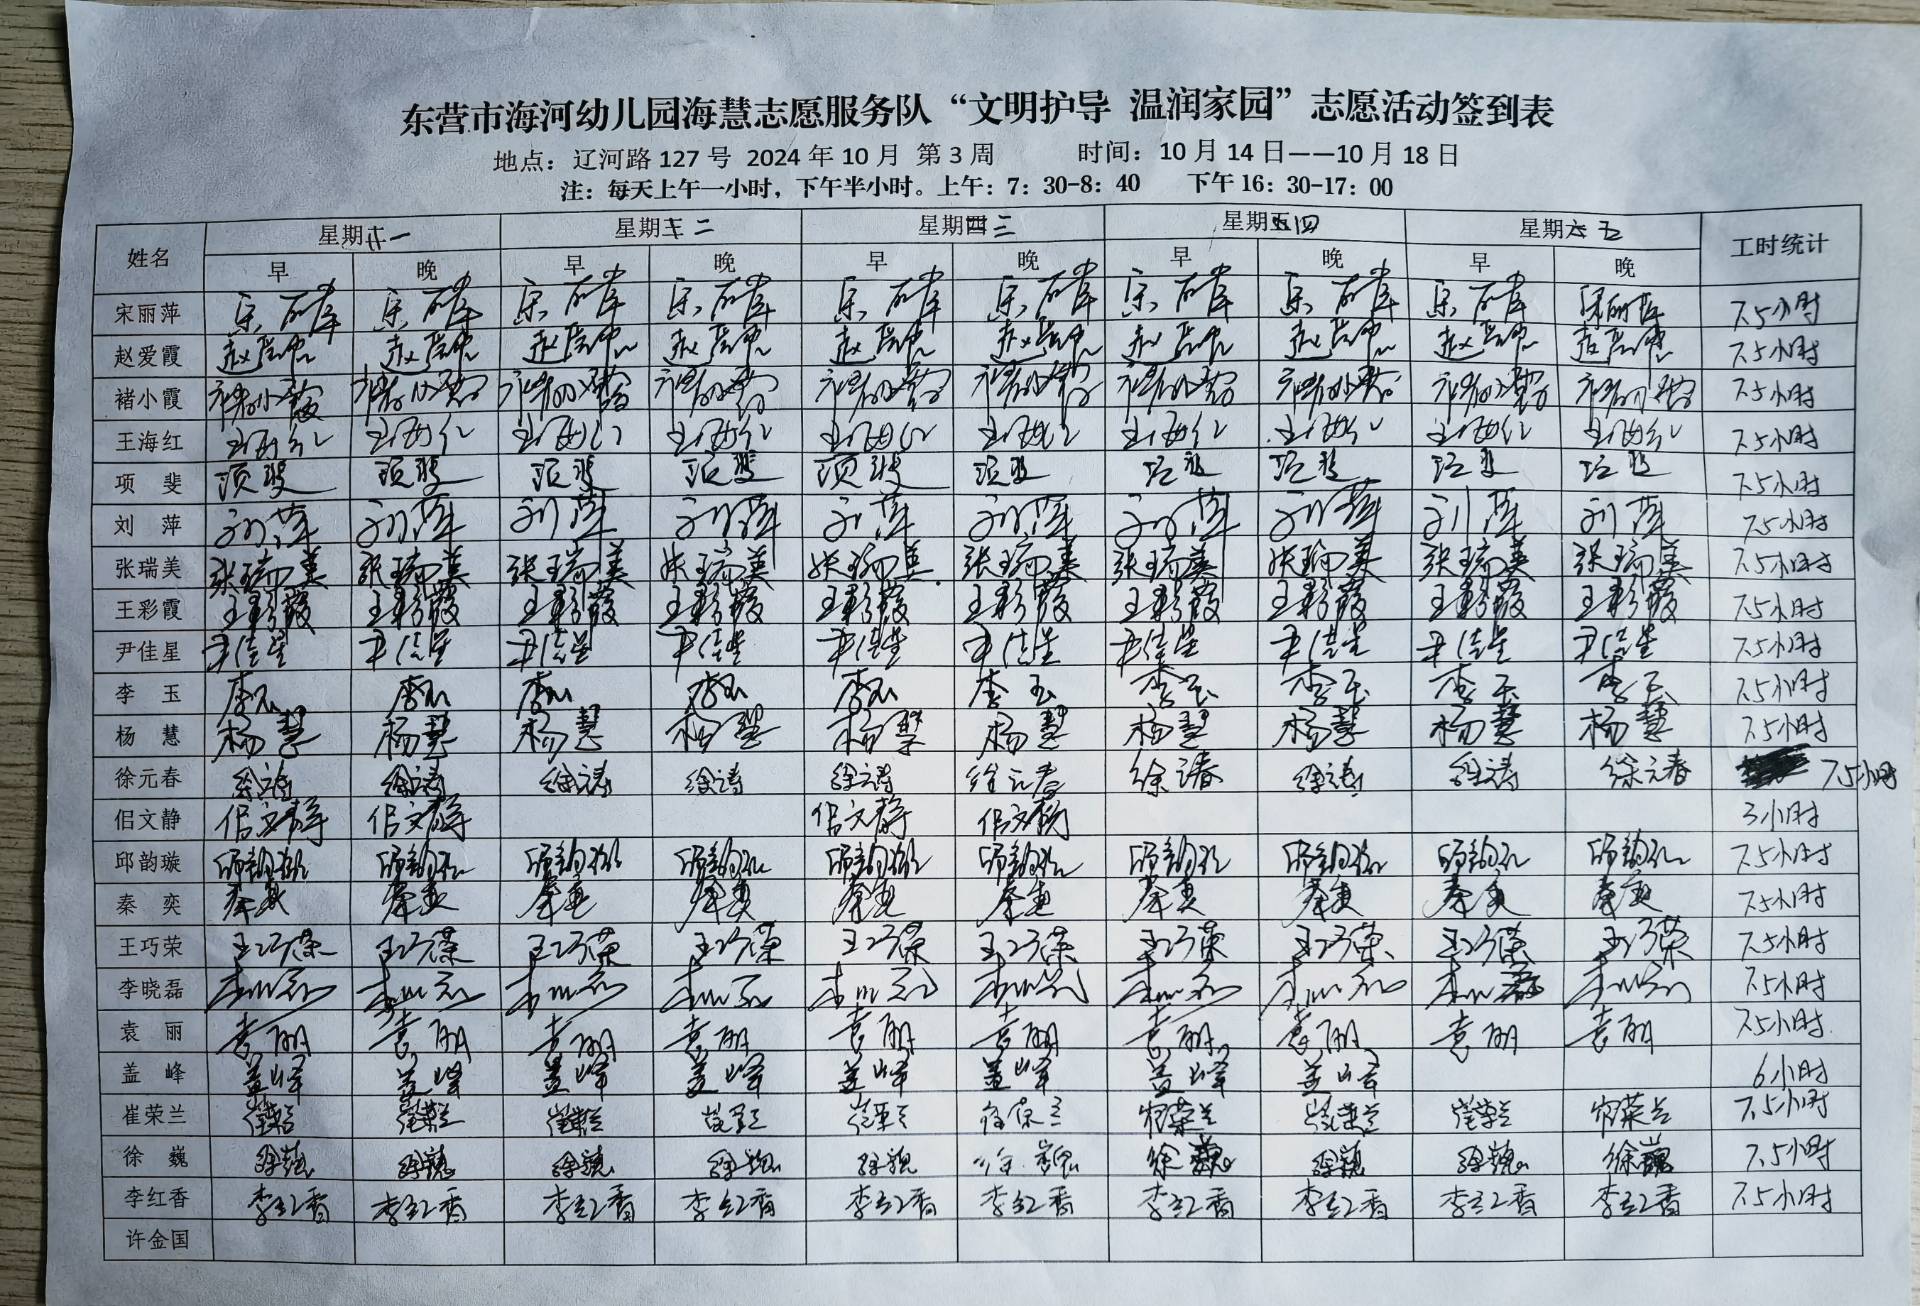 东营市海河幼儿园海慧志愿服务队“文明护导 温润家园”志愿活动签到表
地点：辽河路 127 号 2024 年 10 月 第 3 周 时间：10 月 14 日——10 月 18 日
注：每天上午一小时，下午半小时。上午：7：30-8：40 下午 16：30-17：00
姓名 星期一 星期二 星期三 星期四 星期五 工时统计
早 晚 早 晚 早 晚 早 晚 早 晚
宋丽萍 宋丽萍 宋丽萍 宋丽萍 宋丽萍 宋丽萍 宋丽萍 宋丽萍 宋丽萍 宋丽萍 宋丽萍 7.5小时
赵爱霞 赵爱霞 赵爱霞 赵爱霞 赵爱霞 赵爱霞 赵爱霞 赵爱霞 赵爱霞 赵爱霞 赵爱霞 7.5小时
褚小霞 褚小霞 褚小霞 褚小霞 褚小霞 褚小霞 褚小霞 褚小霞 褚小霞 褚小霞 褚小霞 7.5小时
王海红 王海红 王海红 王海红 王海红 王海红 王海红 王海红 王海红 王海红 王海红 7.5小时
项 斐 项斐 项斐 项斐 项斐 项斐 项斐 项斐 项斐 项斐 项斐 7.5小时
刘 萍 刘萍 刘萍 刘萍 刘萍 刘萍 刘萍 刘萍 刘萍 刘萍 刘萍 7.5小时
张瑞美 张瑞美 张瑞美 张瑞美 张瑞美 张瑞美 张瑞美 张瑞美 张瑞美 张瑞美 张瑞美 7.5小时
王彩霞 王彩霞 王彩霞 王彩霞 王彩霞 王彩霞 王彩霞 王彩霞 王彩霞 王彩霞 王彩霞 7.5小时
尹佳星 尹佳星 尹佳星 尹佳星 尹佳星 尹佳星 尹佳星 尹佳星 尹佳星 尹佳星 尹佳星 7.5小时
李 玉 李玉 李玉 李玉 李玉 李玉 李玉 李玉 李玉 李玉 李玉 7.5小时
杨 慧 杨慧 杨慧 杨慧 杨慧 杨慧 杨慧 杨慧 杨慧 杨慧 杨慧 7.5小时
徐元春 徐元春 徐元春 徐元春 徐元春 徐元春 徐元春 徐元春 徐元春 徐元春 徐元春 7.5小时
佀文静 佀文静 佀文静 佀文静 佀文静 3小时
邱韵璇 邱韵璇 邱韵璇 邱韵璇 邱韵璇 邱韵璇 邱韵璇 邱韵璇 邱韵璇 邱韵璇 邱韵璇 7.5小时
秦 奕 秦奕 秦奕 秦奕 秦奕 秦奕 秦奕 秦奕 秦奕 秦奕 秦奕 7.5小时
王巧荣 王巧荣 王巧荣 王巧荣 王巧荣 王巧荣 王巧荣 王巧荣 王巧荣 王巧荣 王巧荣 7.5小时
李晓磊 李晓磊 李晓磊 李晓磊 李晓磊 李晓磊 李晓磊 李晓磊 李晓磊 李晓磊 李晓磊 7.5小时
袁 丽 袁丽 袁丽 袁丽 袁丽 袁丽 袁丽 袁丽 袁丽 袁丽 袁丽 7.5小时
盖 峰 盖峰 盖峰 盖峰 盖峰 盖峰 盖峰 盖峰 盖峰 6小时
崔荣兰 崔荣兰 崔荣兰 崔荣兰 崔荣兰 崔荣兰 崔荣兰 崔荣兰 崔荣兰 崔荣兰 崔荣兰 7.5小时
徐 巍 徐巍 徐巍 徐巍 徐巍 徐巍 徐巍 徐巍 徐巍 徐巍 徐巍 7.5小时
李红香 李红香 李红香 李红香 李红香 李红香 李红香 李红香 李红香 李红香 李红香 7.5小时
许金国